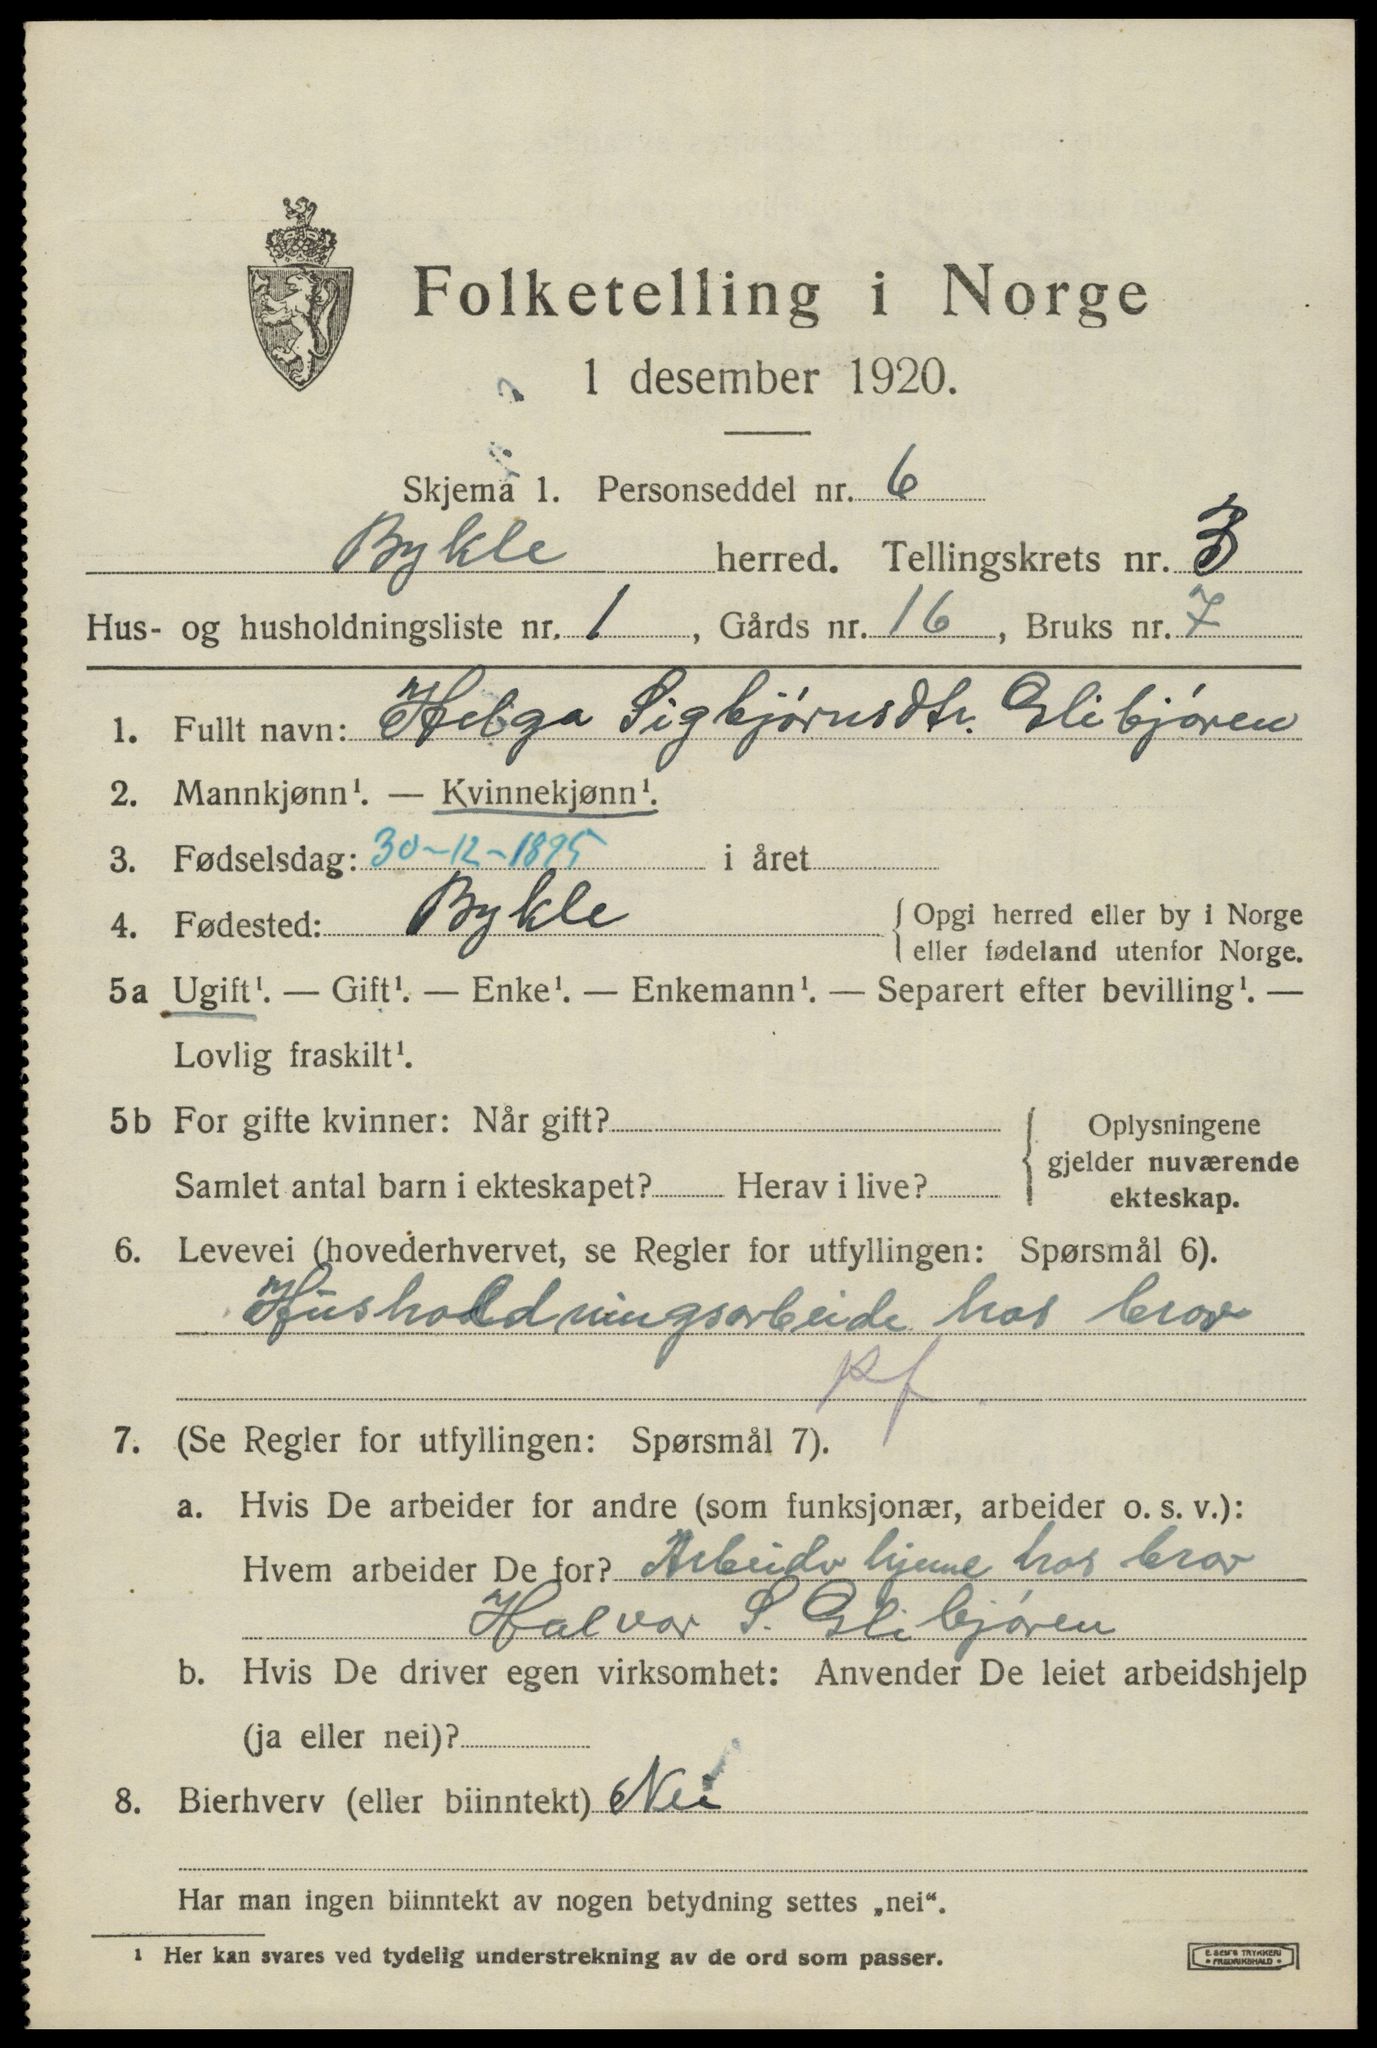 Folketelling i Norge
1 desember 1920.
Skjema 1. Personseddel nr. 6
Bykle herred. Tellingskrets nr. 3
Hus- og husholdningsliste nr. 1, Gårds nr. 16, Bruks nr. 7
1. Fullt navn: Helga Sigbjørnsdtr. Glibjøren
2. Mannkjønn¹. — Kvinnekjønn¹.
3. Fødselsdag: 30-12-1895 i året
4. Fødested: Bykle { Opgi herred eller by i Norge
eller fødeland utenfor Norge.
5a Ugift¹. — Gift¹. — Enke¹. — Enkemann¹. — Separert efter bevilling¹. —
Lovlig fraskilt¹.
5b For gifte kvinner: Når gift? { Oplysningene
gjelder nuværende
Samlet antal barn i ekteskapet? Herav i live?
ekteskap.
6. Levevei (hovederhvervet, se Regler for utfyllingen: Spørsmål 6).
Husholdningsarbeide hos bror
7. (Se Regler for utfyllingen: Spørsmål 7).
a. Hvis De arbeider for andre (som funksjonær, arbeider o. s. v.):
Hvem arbeider De for? Arbeider hjemme hos bror
Halvor S. Glibjøren
b. Hvis De driver egen virksomhet: Anvender De leiet arbeidshjelp
(ja eller nei)?
8. Bierhverv (eller biinntekt) Nei
Har man ingen biinntekt av nogen betydning settes „nei“.
¹ Her kan svares ved tydelig understrekning av de ord som passer.
E. SEM'S TRYKKERI
• FREDRIKSHALD •